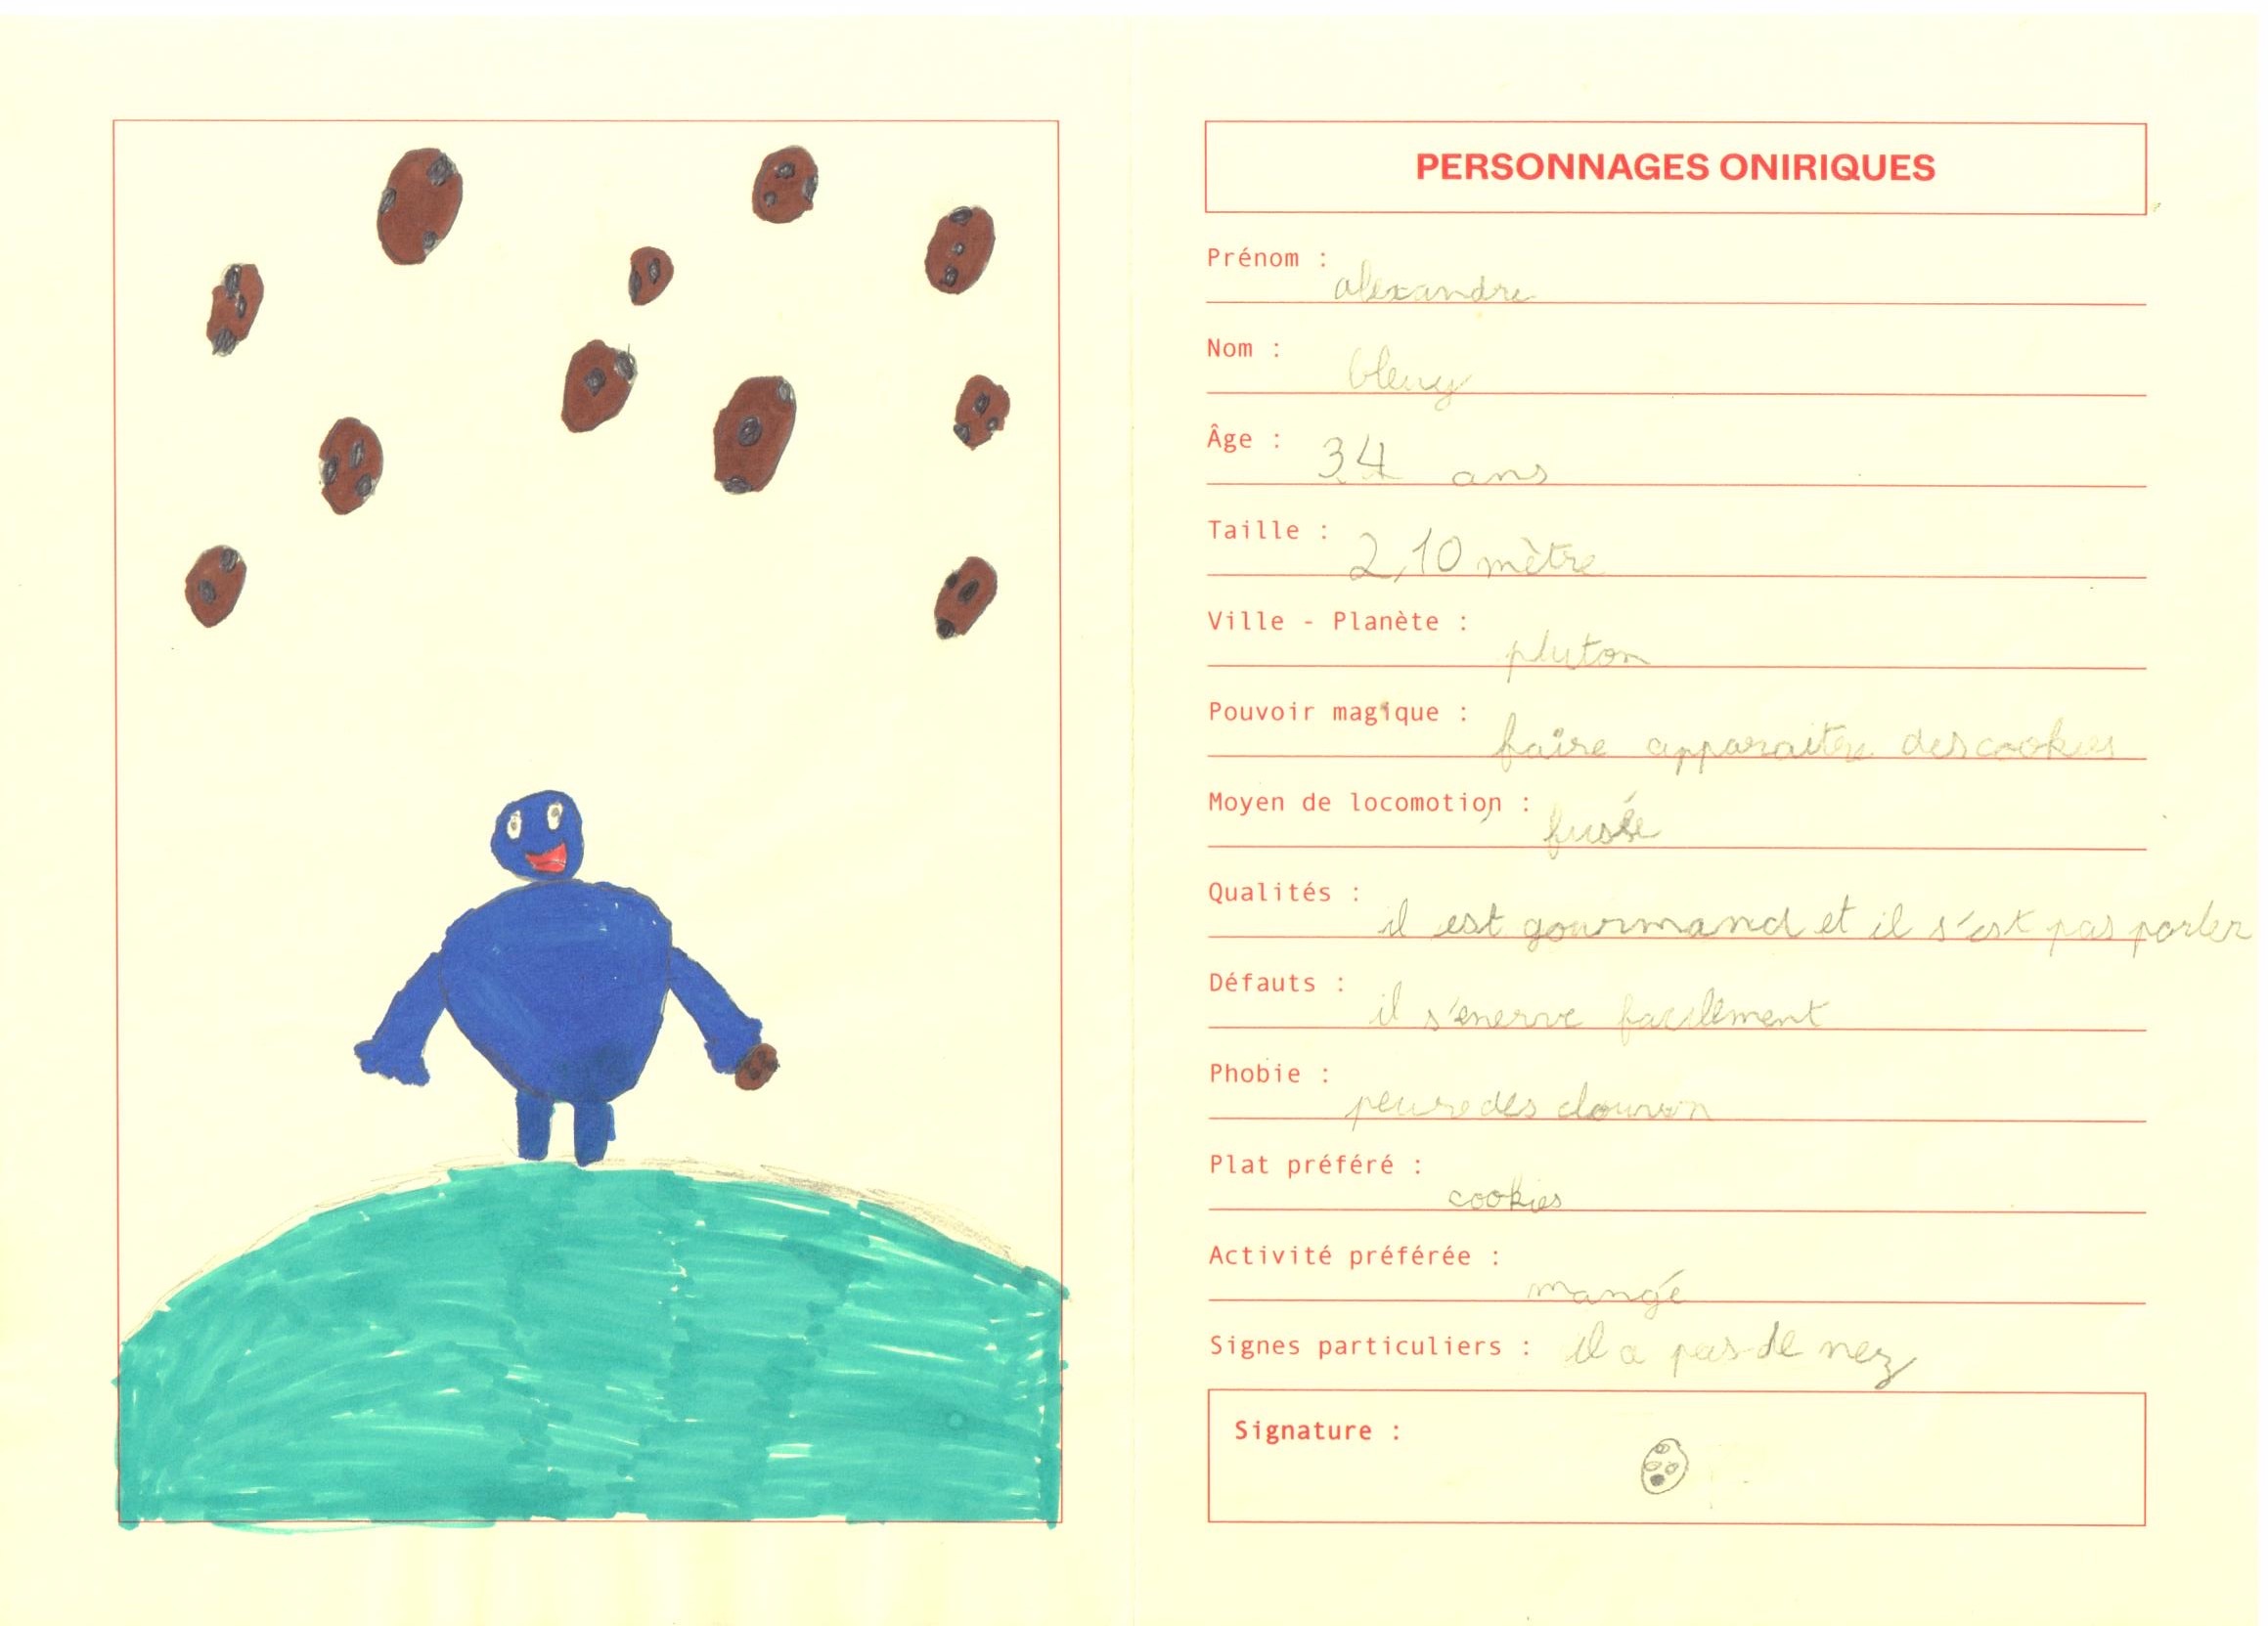 PERSONNAGES ONIRIQUES
Prénom : alexandre
Nom : bleuy
Âge : 34 ans
Taille : 2,10 mètre
Ville - Planète : pluton
Pouvoir magique : faire apparaitre des cookies
Moyen de locomotion : fusée
Qualités : il est gourmand et il s'est pas parler
Défauts : il s'enerve facilement
Phobie : peure des
Plat préféré : cookies
Activité préférée : mangé
Signes particuliers : il a pas de nez
Signature :